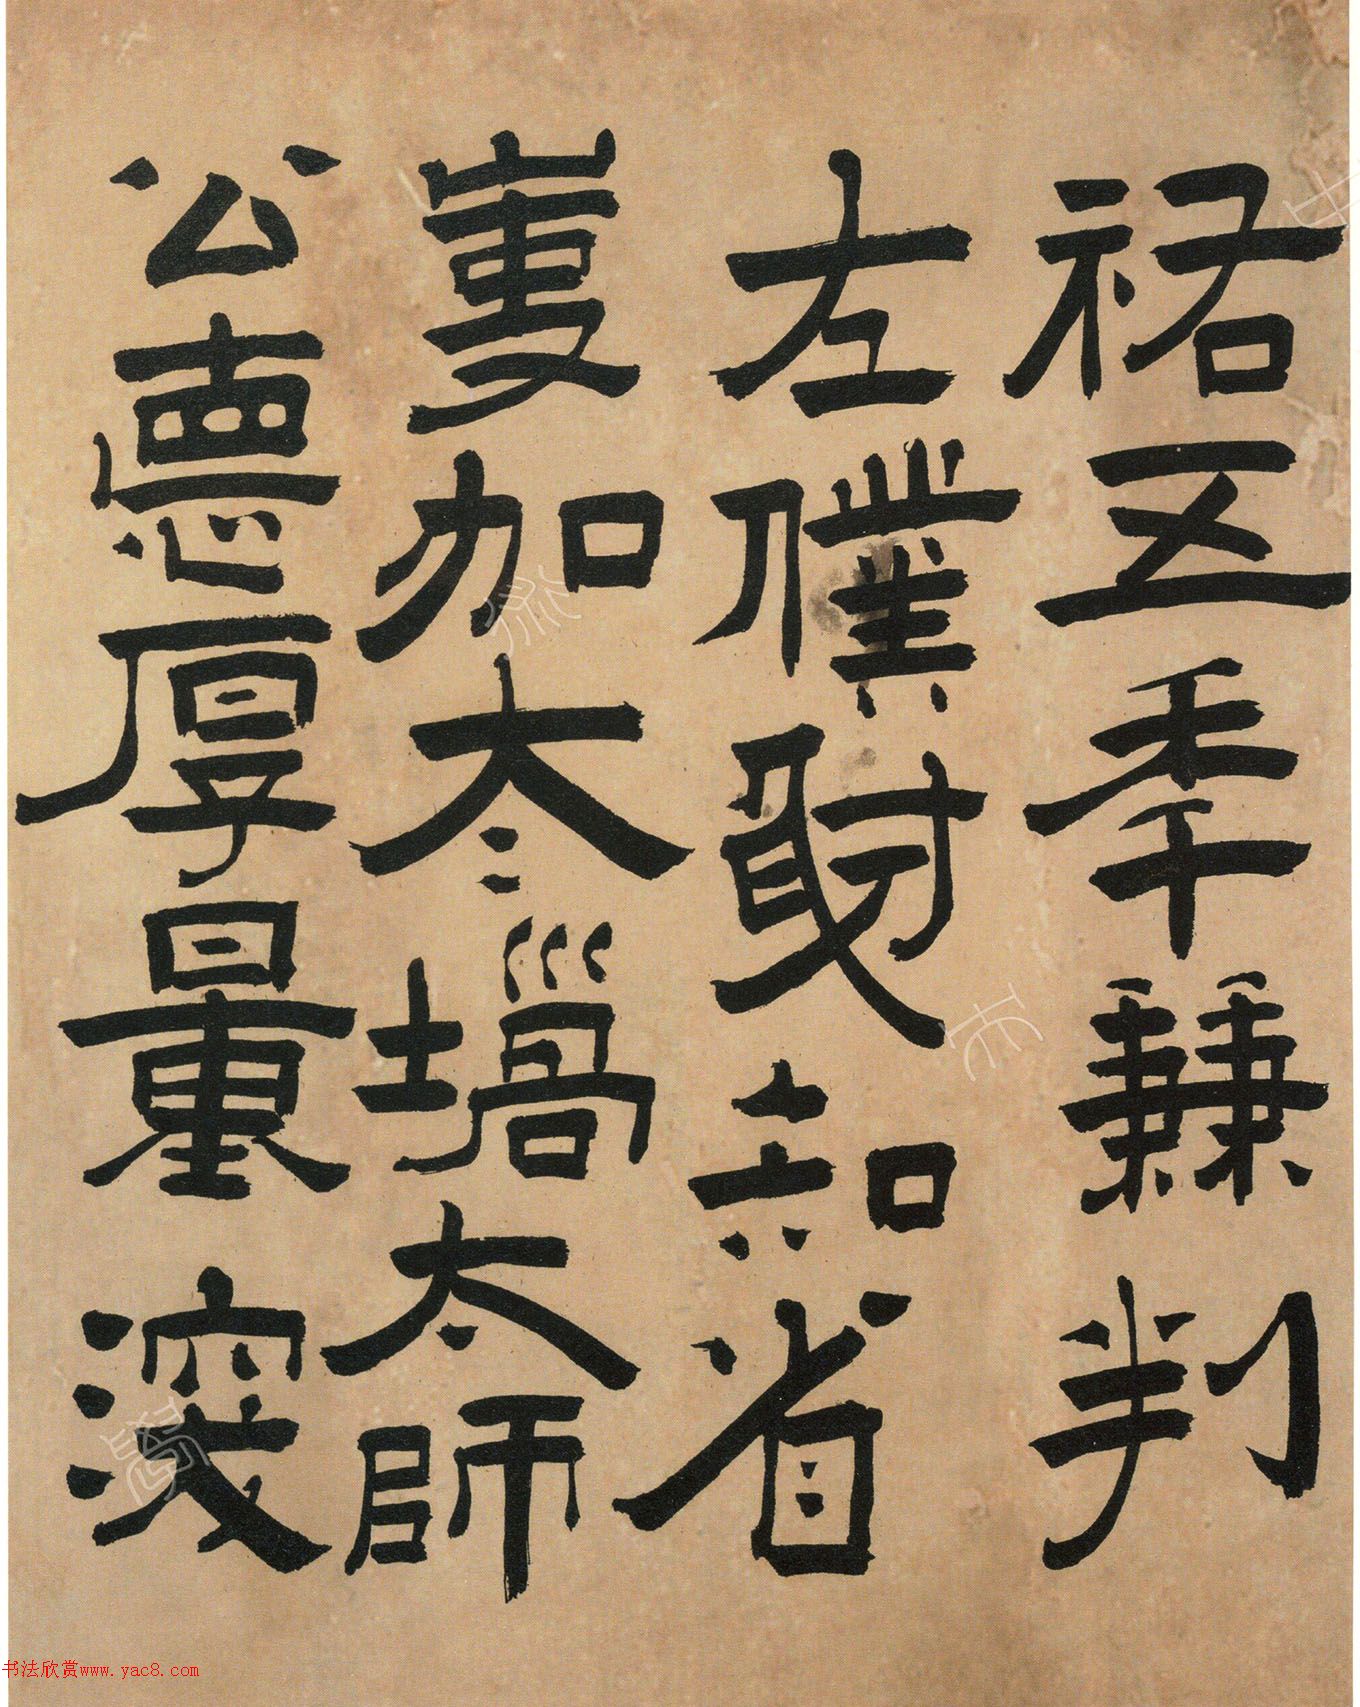 祐五秊兼判
左僕射知省
事加太太師
公德厚量深
书法欣赏www.yac8.com